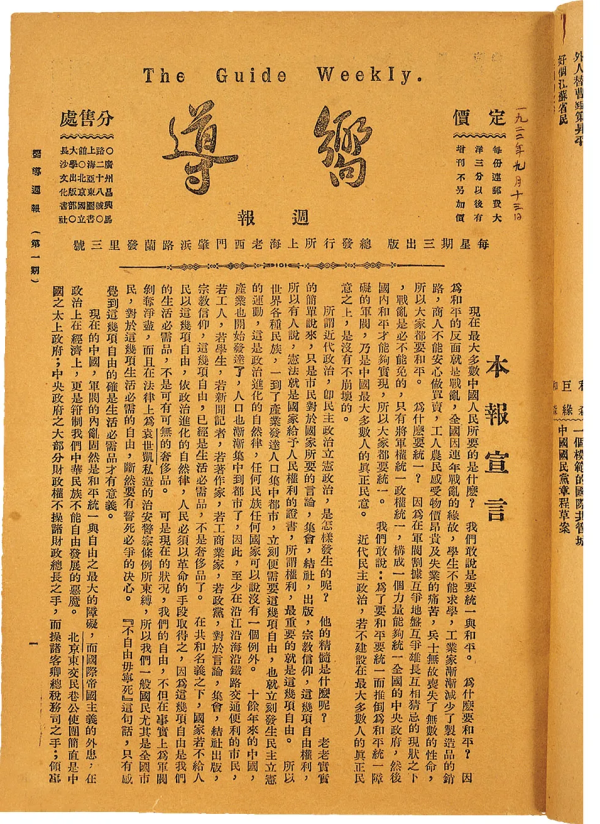 The Guide Weekly.
嚮導
週報
定價
每份連郵費大
洋三分以後有
增刊不另加價
一九二二年九月十三日
分售處
〇廣州昌興馬
路二十八號〇
上海亞東圖書
館〇北京國立
大學出版部〇
長沙文化書社
每星期三出版 總發行所上海老西門肇浜路蘭發里三號
本報宣言
現在最大多數中國人民所要的是什麼?我們敢說是要統一與和平。爲什麼要和平?因
爲和平的反面就是戰亂,全國因連年戰亂的緣故,學生不能求學,工業家漸漸減少了製造品的銷
路,商人不能安心做買賣,工人農民感受物價昂貴及失業的痛苦,兵士無故喪失了無數的性命,
所以大家都要和平。爲什麼要統一?因爲在軍閥割據互爭地盤互爭雄長互相猜忌的現狀之下
,戰亂是必不能免的,只有將軍權統一政權統一,構成一個力量能夠統一全國的中央政府,然後
國內和平才能夠實現,所以大家都要統一。我們敢說:爲了要和平要統一而推倒爲和平統一障
礙的軍閥,乃是中國最大多數人的真正民意。近代民主政治,若不建設在最大多數人的真正民
意之上,是沒有不崩壞的。
所謂近代政治,卽民主政治立憲政治,是怎樣發生的呢?他的精髓是什麼呢?老老實實
的簡單說來,只是市民對於國家所要的言論,集會,結社,出版,宗敎信仰,這幾項自由權利,
所以有人說,憲法就是國家給予人民權利的證書,所謂權利,最重要的就是這幾項自由。所以
世界各種民族,一到了產業發達人口集中都市,立刻便需要這幾項自由,也就立刻發生民主立憲
的運動,這是政治進化的自然律,任何民族任何國家可以說沒有一個例外。十餘年來的中國,
產業也開始發達了,人口也漸漸集中到都市了,因此,至少在沿江沿海沿鐵路交通便利的市民,
若工人,若學生,若新聞記者,若著作家,若工商業家,若政黨,對於言論,集會,結社,出版,
宗敎信仰,這幾項自由,已經是生活必需品,不是奢侈品了。在共和名義之下,國家若不給人
民以這幾項自由,依政治進化的自然律,人民必須以革命的手段取得之,因爲這幾項自由是我們
的生活必需品,不是可有可無的奢侈品。可是現在的狀況,我們的自由,不但在事實上爲軍閥
剝奪淨盡,而且在法律上爲袁世凱私造的治安警察條例所束縛,所以我們一般國民尤其是全國市
民,對於這幾項生活必需的自由,斷然要有誓死必爭的決心。『不自由毋寧死』這句話,只有感
覺到這幾項自由的確是生活必需品才有意義。
現在的中國,軍閥的內亂固然是和平統一與自由之最大的障礙,而國際帝國主義的外患,在
政治上在經濟上,更是箝制我們中華民族不能自由發展的惡魔。北京東交民巷公使團簡直是中
國之太上政府;中央政府之大部分財政權不操諸財政總長之手,而操諸客卿總稅務司之手;領事
嚮導週報(第一期)
一
好個江蘇省民
一個模範的國際共管城
中國國民黨章程草案